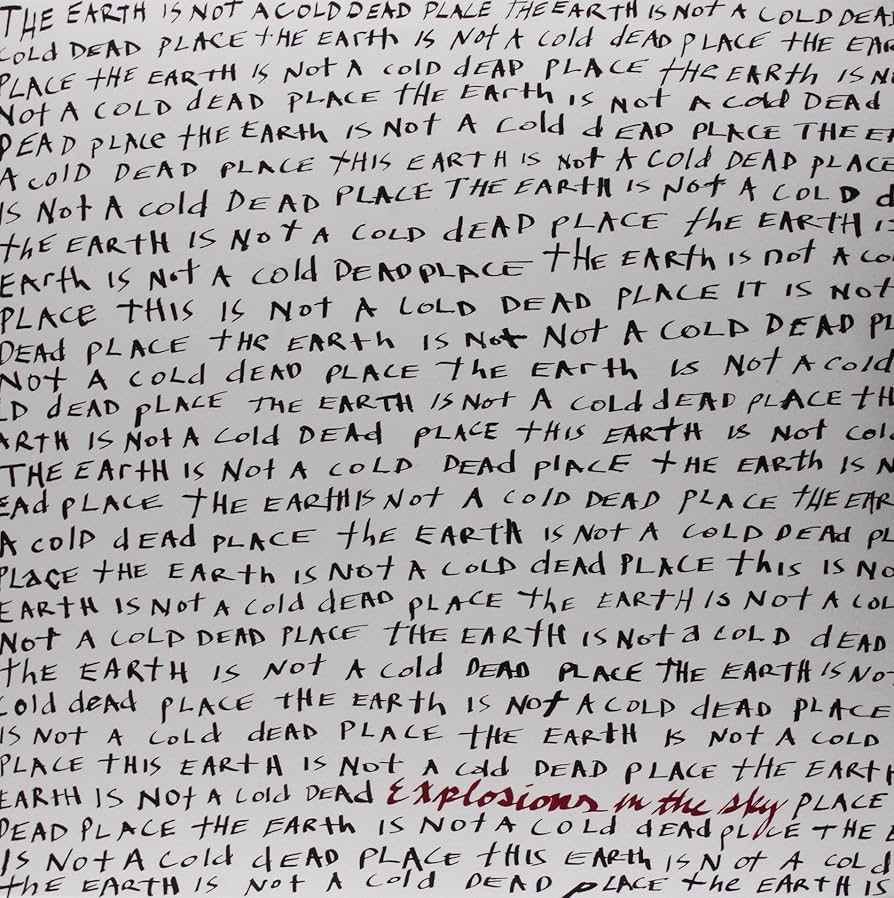 THE EARTH IS NOT A COLD DEAD PLACE THE EARTH IS NOT A COLD DEA
COLD DEAD PLACE tHE EARth IS Not A cold dEAD pLACE tHE EAR
PLACE tHE EARTH IS NOT A cold dEAD PLACE tHE EARth IS N
Not A COLD dEAD PLACE tHE EARth IS Not A cold DEAD
DEAD pLACe tHE EARth IS Not A Cold dEAD PLACE THE E
A colD DEAD PLACE tHIS EARTH IS Not A Cold DEAD pLACE
IS Not A cold DEAD PLACE THE EARtH IS Not A COLD d
thE EARTH IS NOT A COLD dEAD PLACE thE EARTH I
EARth IS Not A cold DEAD PLACE tHE EARth IS not A co
PLACE THIS IS Not A COLD DEAD PLACE IT IS Not
DEAd PLACE tHE EARth IS Not Not A COLD DEAD PL
Not A cold dEAD PLACE thE EARth IS Not A cold
LD dEAD pLACE THE EARTH IS Not A Cold dEAD pLACE tH
ARTH IS Not A Cold DEAd PLACE tHIS EARTH IS Not col
THE EARtH IS Not A COLD DEAd plACE tHE EARth IS N
EAd pLACE tHE EARtH IS Not A colD DEAD PLACE tHE EAR
A colD dEAd pLACE thE EARTH IS Not A COLD DEAd PL
PLACE tHE EARth IS Not A COLD dEAd PLACE this IS No
EARtH IS Not A cold dEAD pLACE the EARtH IS Not A COL
Not A COLD DEAD PLACE tHE EARtH IS Not a COLD dEAD
thE EARTH IS Not A Cold DEAD PLACE THE EARTH IS No
Cold deAd pLACE tHE EARth IS Not A COLD dEAD pLACE
IS Not A cold dEAD PLACE tHE EARtH IS Not A COLD
PLACE tHIS EARtH IS Not A cold DEAD PLACE tHE EARTH
EARTH IS Not A Cold DEAD Explosions in the sky PLACE
DEAD PLACE tHE EARth IS Not A COLD dEAd pLACE tHE E
IS Not A Cold dEAD PLACE tHIS EARth IS Not A COLd
thE EARTH IS Not A Cold DEAD pLACE the EARTH IS